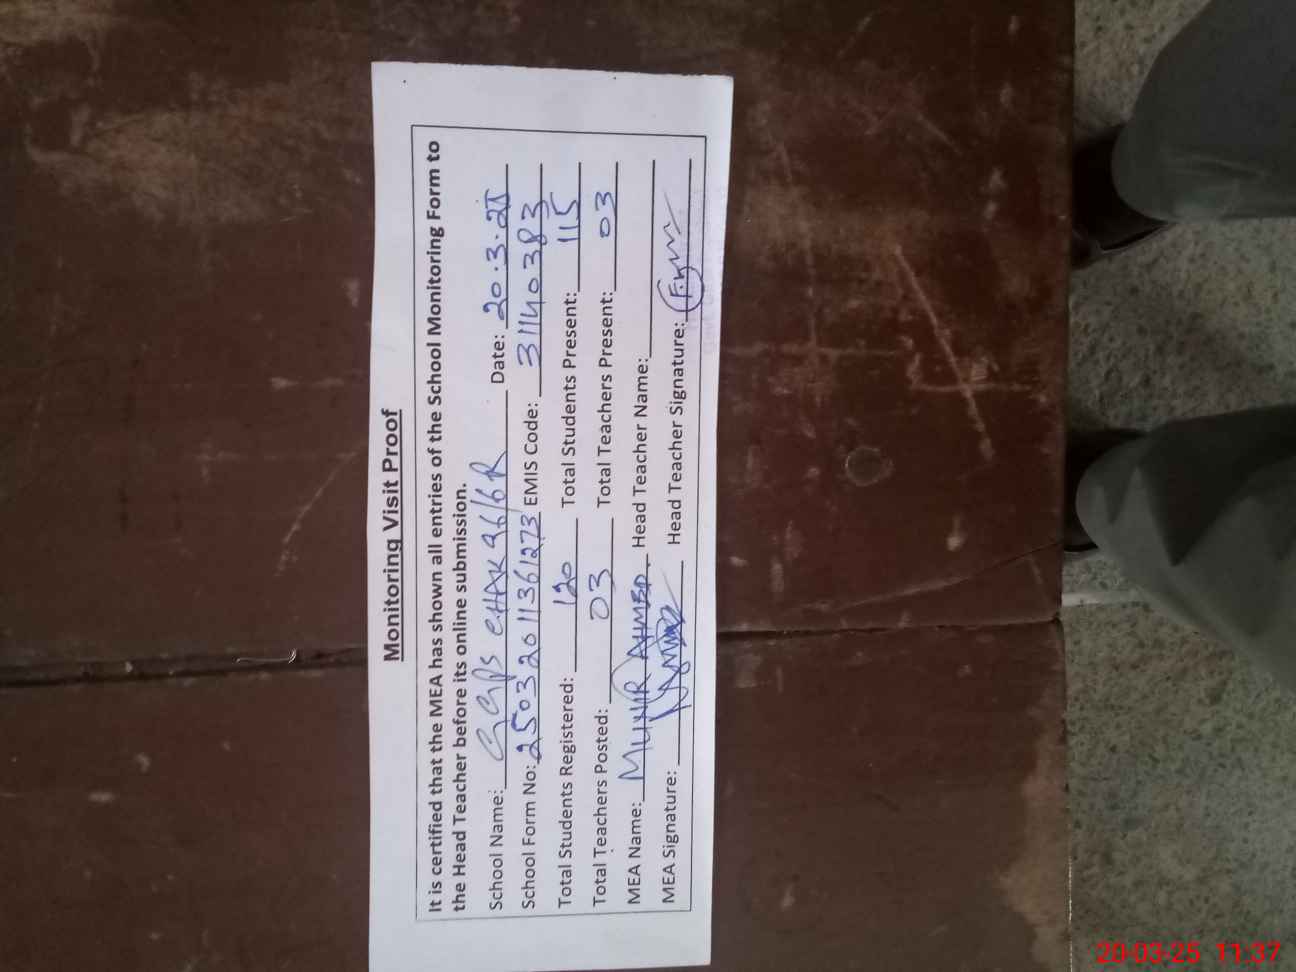 Monitoring Visit Proof
It is certified that the MEA has shown all entries of the School Monitoring Form to
the Head Teacher before its online submission.
School Name: GGPS CHAK 96/6R Date: 20.3.25
School Form No: 25032011361273 EMIS Code: 31140383
Total Students Registered: 120 Total Students Present: 115
Total Teachers Posted: 03 Total Teachers Present: 03
MEA Name: MUNIR AHMED. Head Teacher Name:
MEA Signature: Head Teacher Signature:
20-03-25 11:37